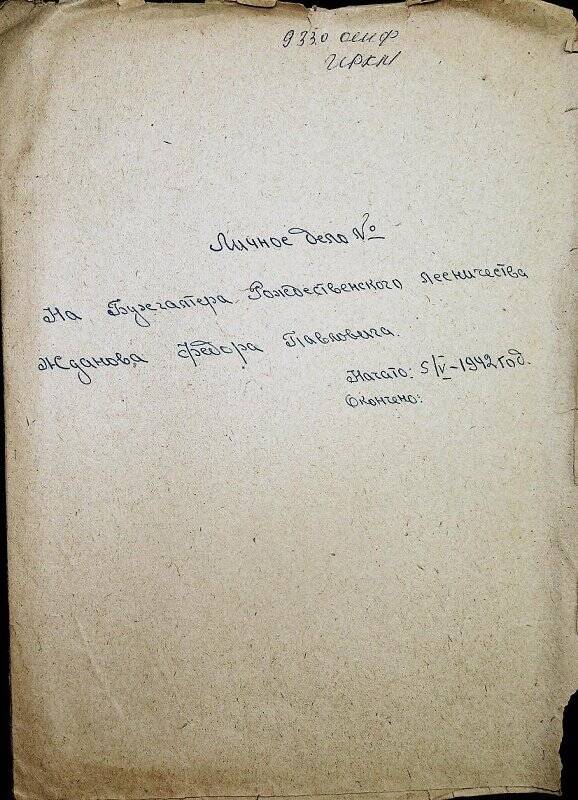 9330 осиф
ИРКМ
Личное дело №
На Бухгалтера Рождественского лесничества
Жданова Федора Павловича.
Начато: 5/V-1942 год.
Окончено: